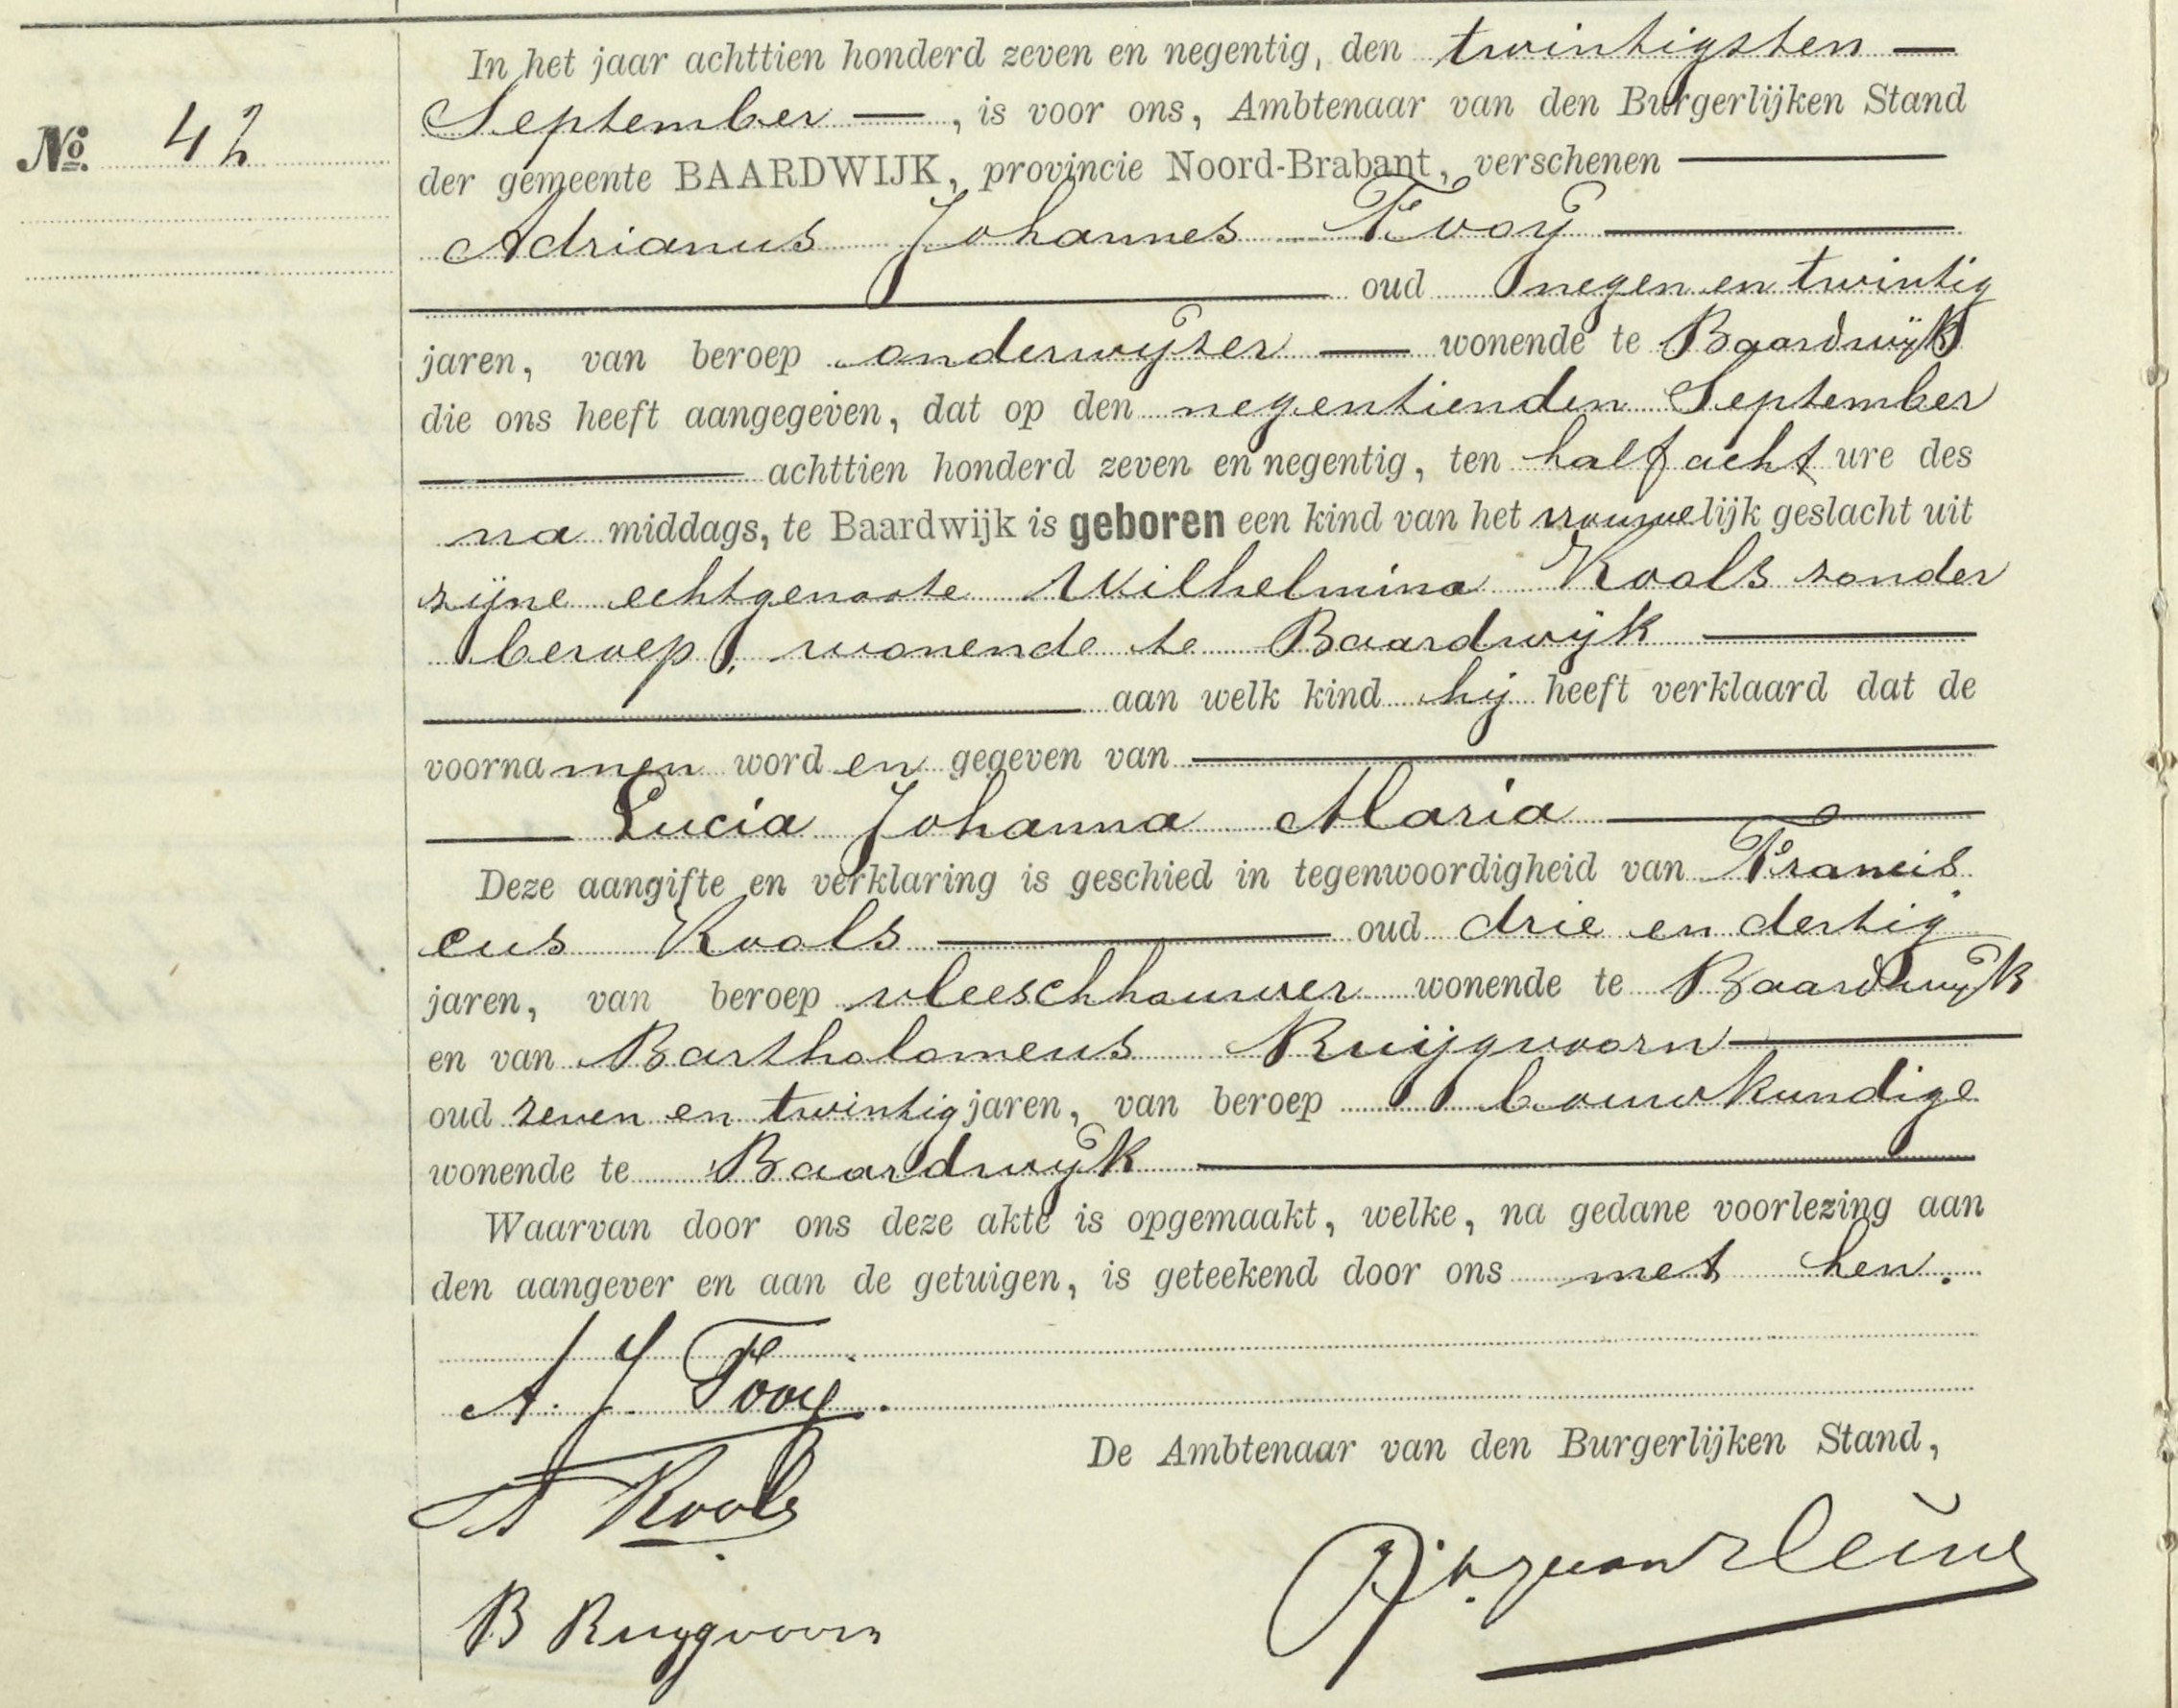 No. 42
In het jaar achttien honderd zeven en negentig, den twintigsten —
September — , is voor ons, Ambtenaar van den Burgerlijken Stand
der gemeente BAARDWIJK, provincie Noord-Brabant, verschenen —
Adrianus Johannes Fooy —
— oud negen en twintig
jaren, van beroep onderwyzer — wonende te Baardwijk
die ons heeft aangegeven, dat op den negentienden September
— achttien honderd zeven en negentig, ten half acht ure des
na middags, te Baardwijk is geboren een kind van het vrouwelijk geslacht uit
zijne echtgenoote Wilhelmina Kools zonder
beroep, wonende te Baardwijk —
— aan welk kind hij heeft verklaard dat de
voornamen worden gegeven van —
— Lucia Johanna Maria —
Deze aangifte en verklaring is geschied in tegenwoordigheid van Francis
cus Kools — oud drie en dertig
jaren, van beroep vleeschhouwer wonende te Baardwijk
en van Bartholomeus Ruijgvoorn —
oud zeven en twintig jaren, van beroep bouwkundige
wonende te Baardwijk —
Waarvan door ons deze akte is opgemaakt, welke, na gedane voorlezing aan
den aangever en aan de getuigen, is geteekend door ons met hen.
A. J. Fooy.
De Ambtenaar van den Burgerlijken Stand,
Kools
B Ruygvoorn